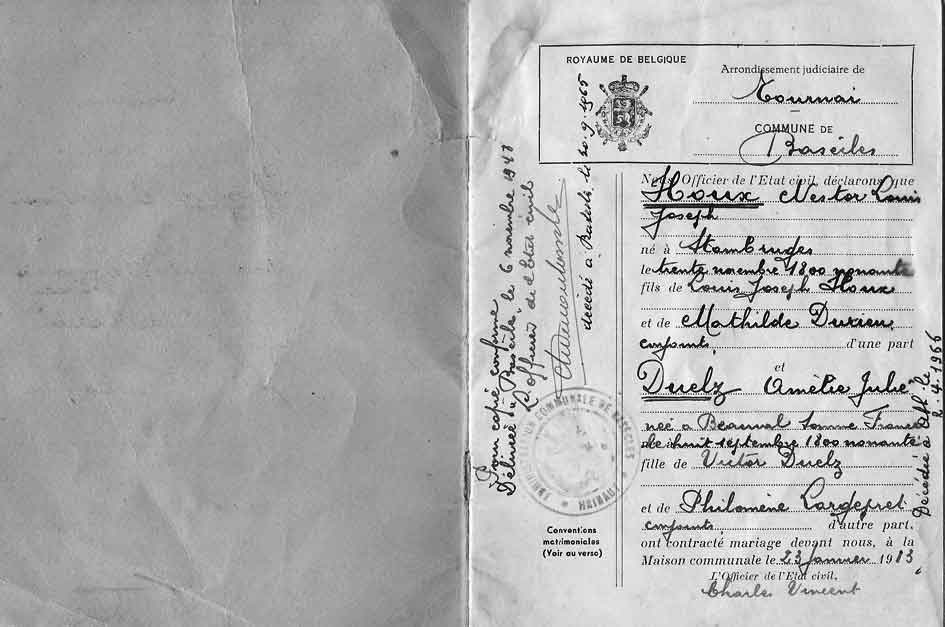 ROYAUME DE BELGIQUE
Arrondissement judiciaire de
Tournai
COMMUNE DE
Basècles
Nous, Officier de l'Etat civil, déclarons que
Houx Nestor Louis
Joseph
né à Stambruges
le trente novembre 1800 nonante
fils de Louis Joseph Houx
et de Mathilde
conjoints, d'une part
et
Duelz Amélie Julie
née à Beauval Somme France
le huit septembre 1800 nonante
fille de Victor Duelz
et de Philomène
conjoints, d'autre part,
ont contracté mariage devant nous, à la
Maison communale le 23 janvier 1913.
L'Officier de l'Etat civil,
Charles Vincent
Conventions
matrimoniales
(Voir au verso)
Pour copie conforme
Délivrée à Basècles, le 6 novembre 1948
L'officier de l'Etat civil
décédé à le 20.9.1965
Décédée à le
2.4.1966
ADMINISTRATION COMMUNALE DE BASECLES
HAINAUT